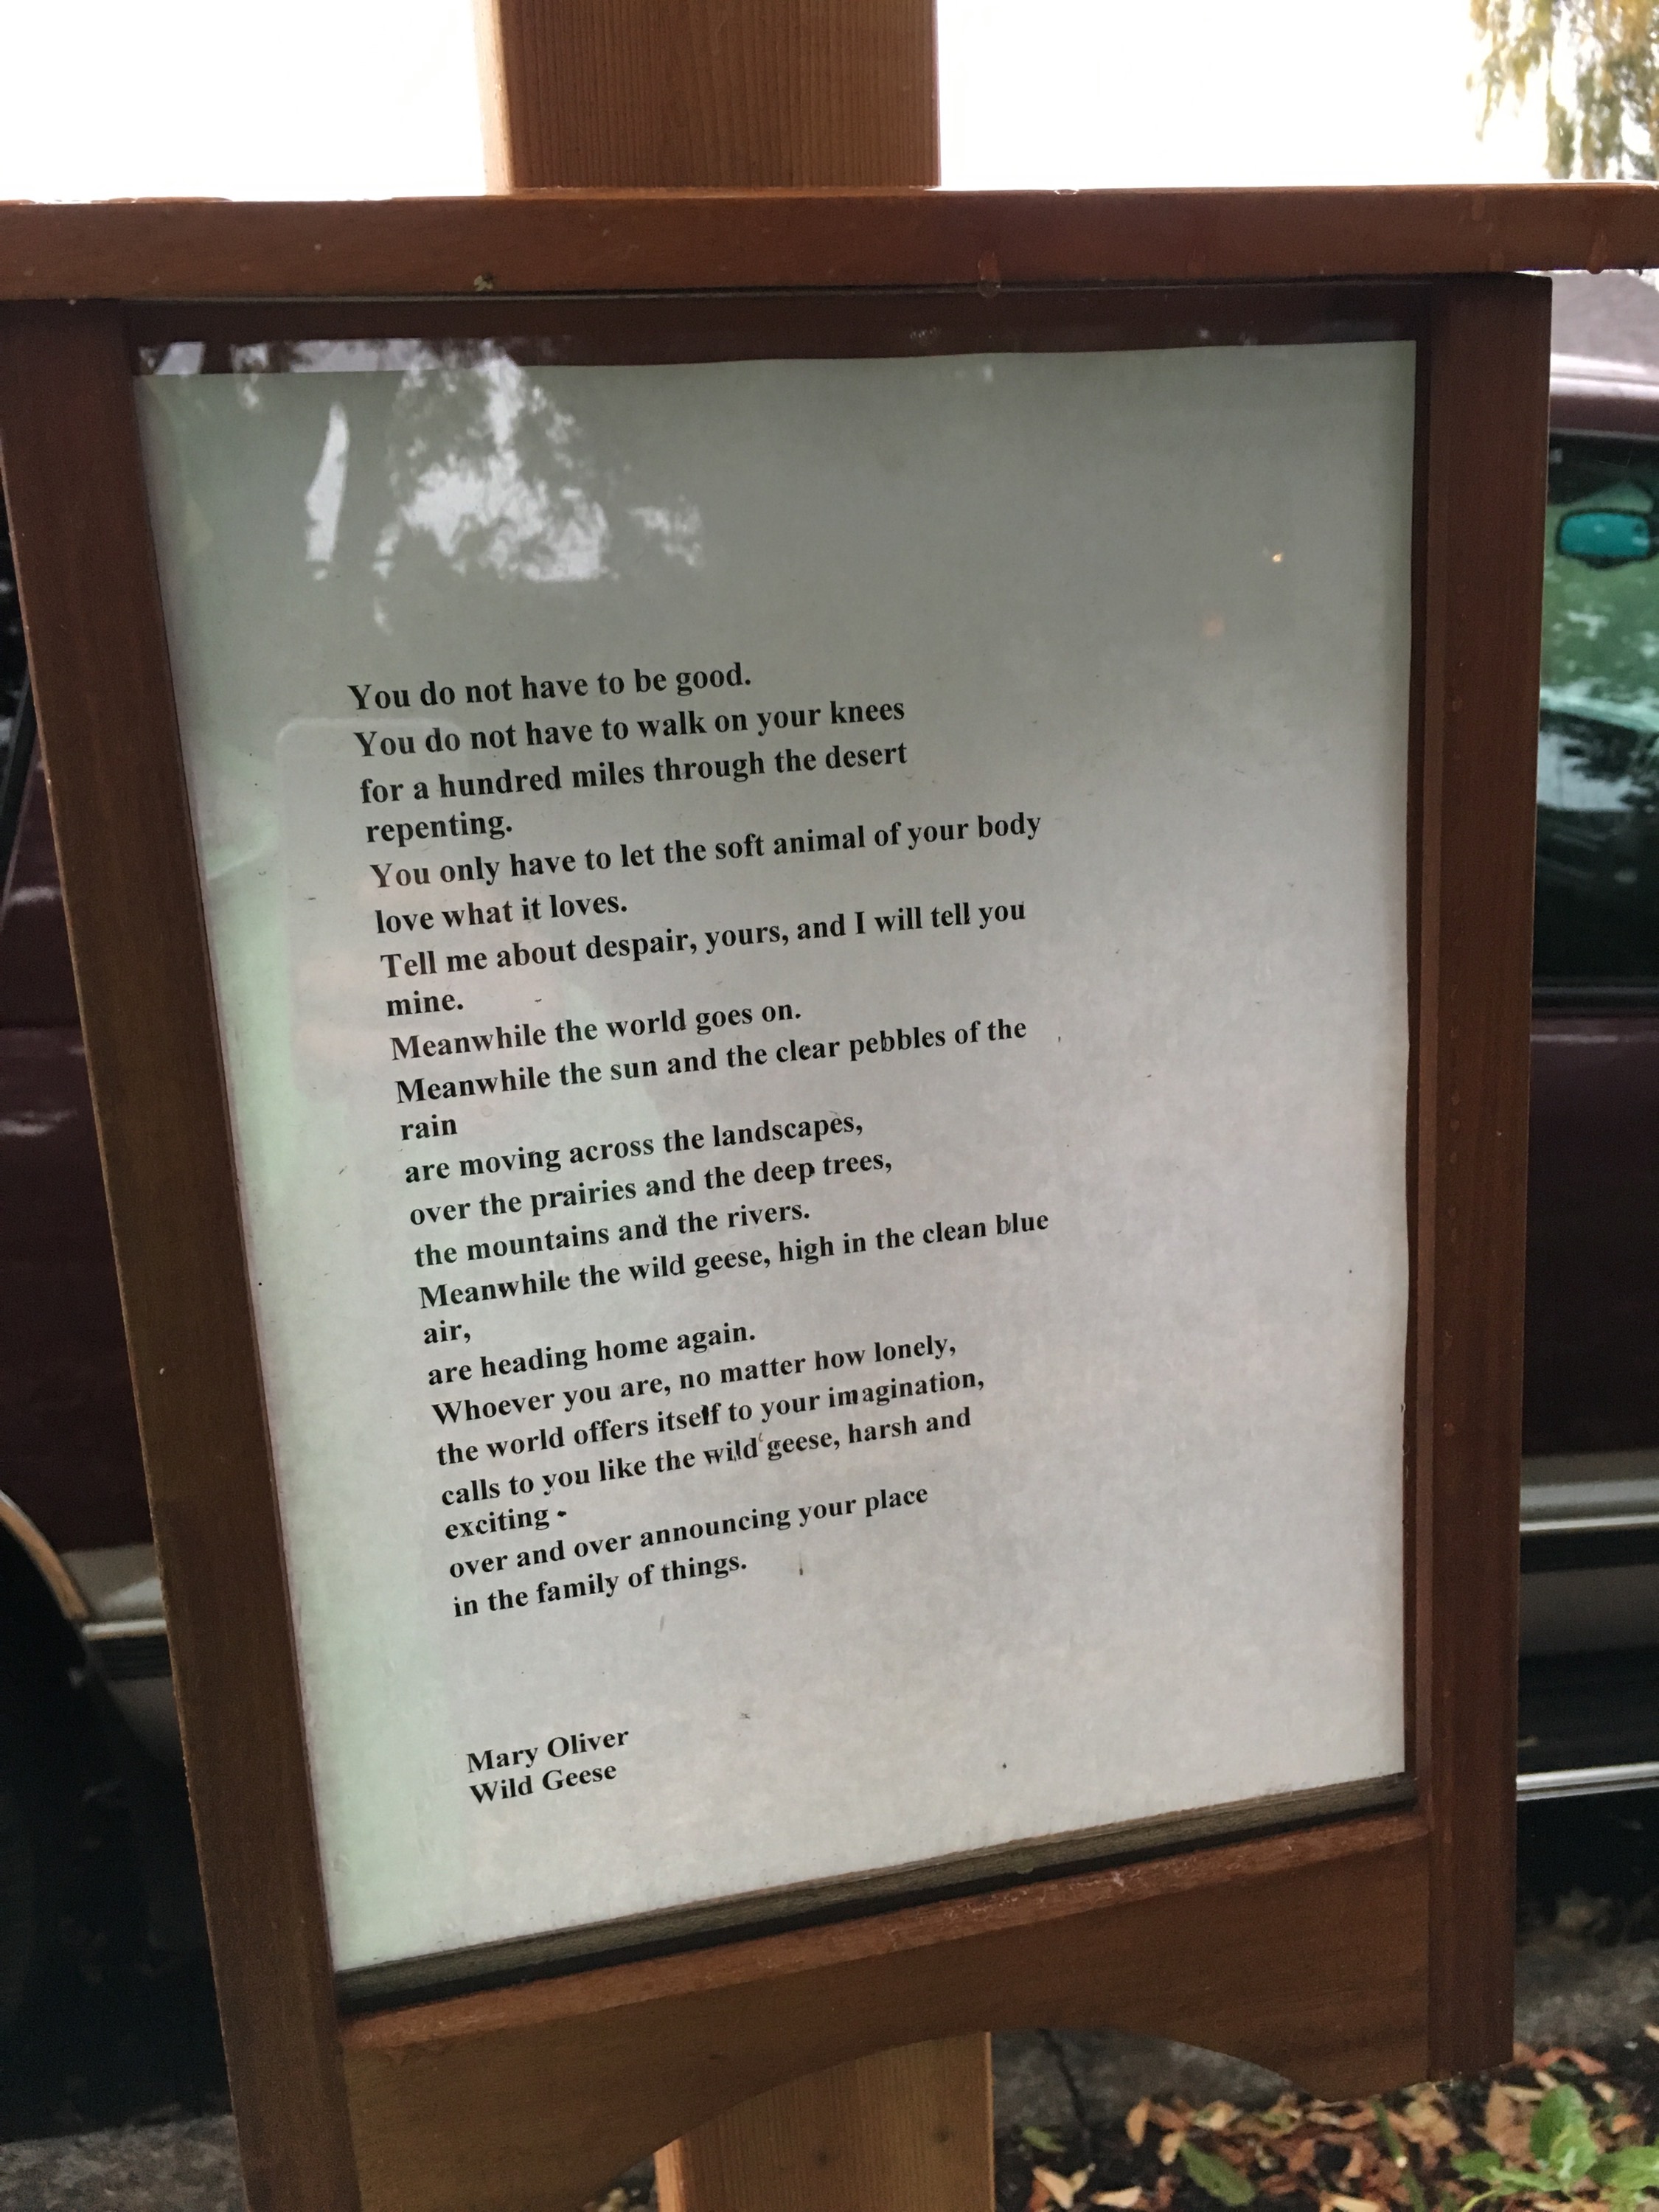 You do not have to be good.
You do not have to walk on your knees
for a hundred miles through the desert
repenting.
You only have to let the soft animal of your body
love what it loves.
Tell me about despair, yours, and I will tell you
mine.
Meanwhile the world goes on.
Meanwhile the sun and the clear pebbles of the
rain
are moving across the landscapes,
over the prairies and the deep trees,
the mountains and the rivers.
Meanwhile the wild geese, high in the clean blue
air,
are heading home again.
Whoever you are, no matter how lonely,
the world offers itself to your imagination,
calls to you like the wild geese, harsh and
exciting -
over and over announcing your place
in the family of things.
Mary Oliver
Wild Geese